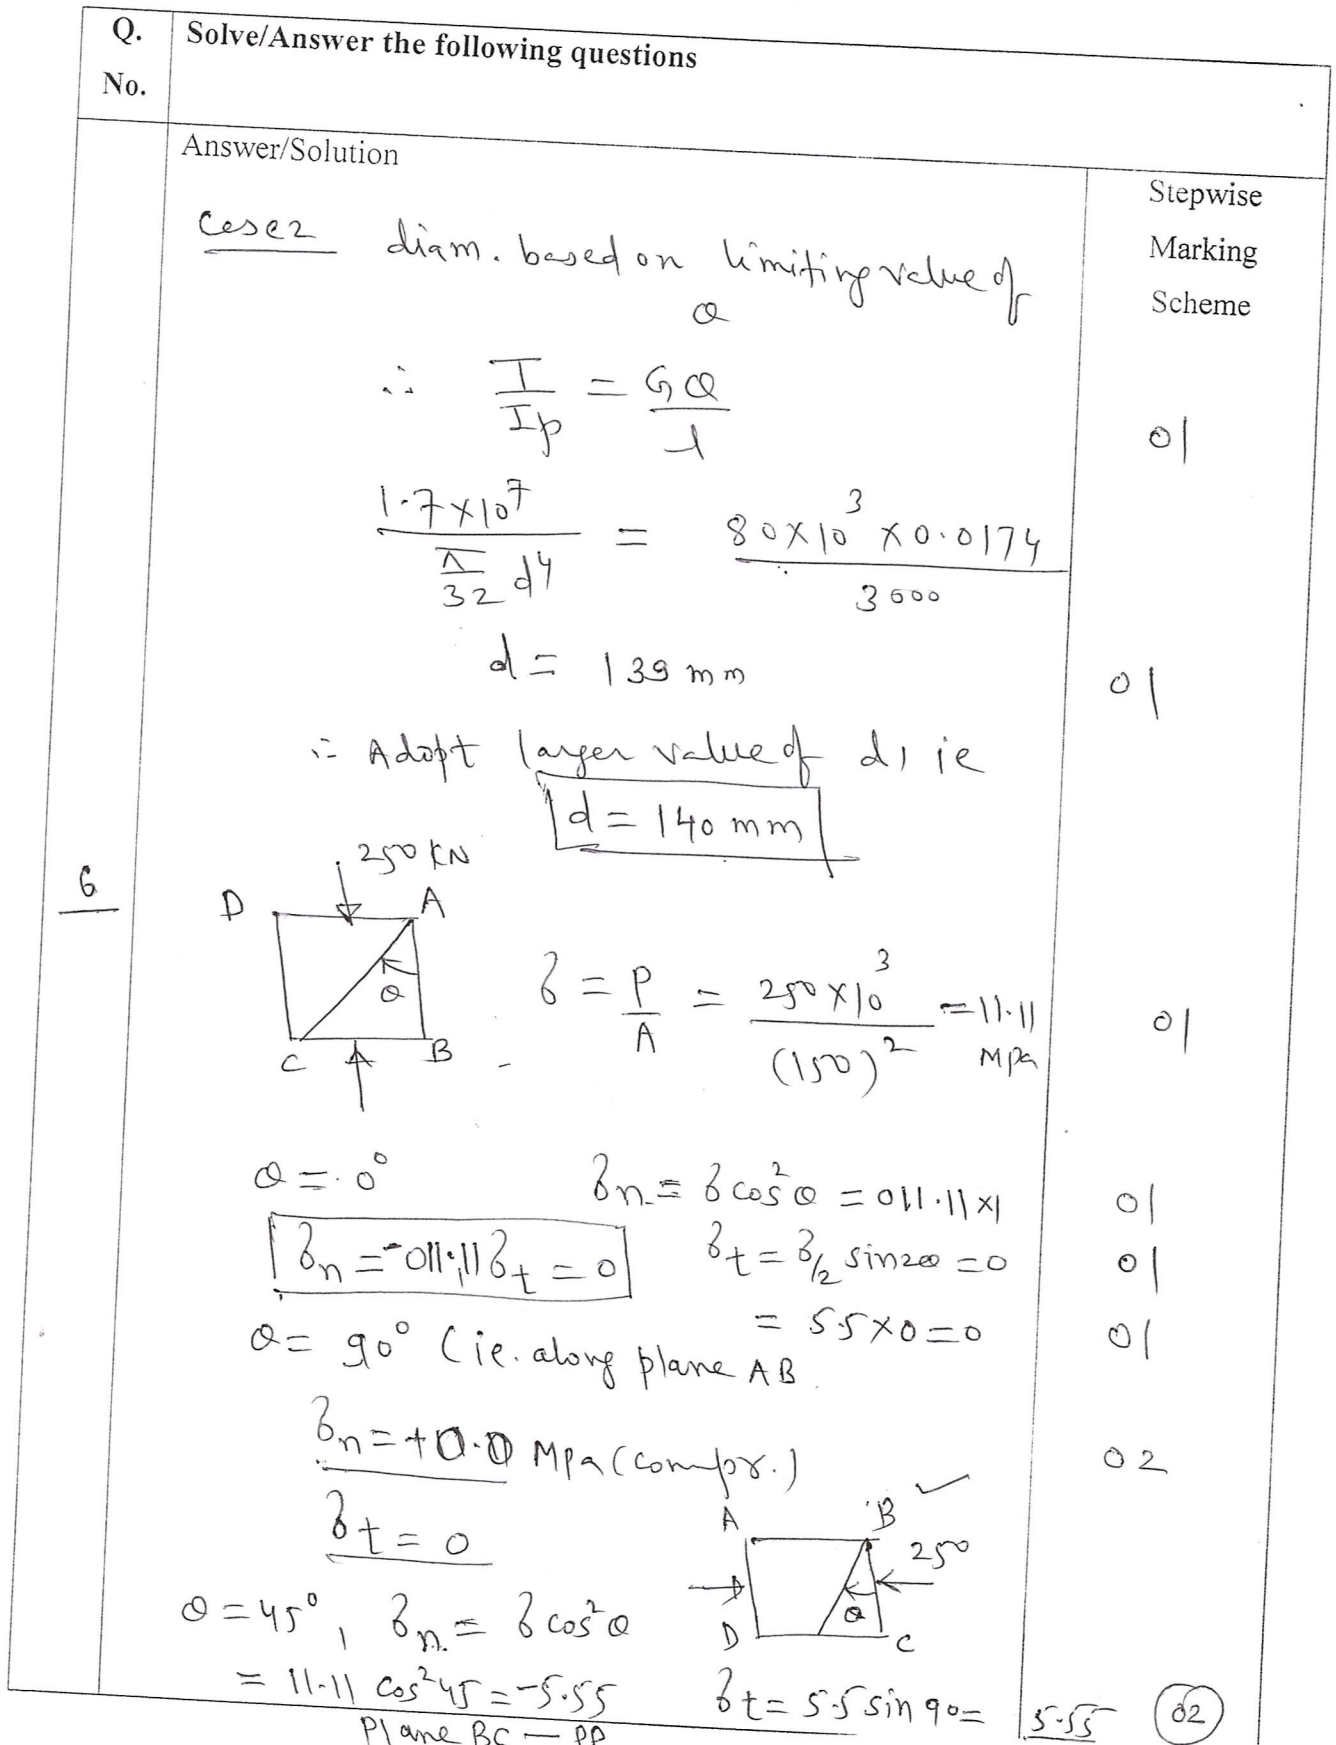 Q. No.
Solve/Answer the following questions
Answer/Solution
Stepwise
Marking
Scheme
Case 2 diam. based on limiting value of
θ
∴ T/Ip = Gθ/l 01
1.7×10^7 / (π/32 d^4) = 80×10^3 ×0.0174 / 3600
d = 139 mm 01
∴ Adopt larger value of d, ie
d = 140 mm
6
250 KN
D A
θ
C B
σ = P/A = 250×10^3 / (150)^2 = 11.11 MPa 01
θ = 0° σn = σ cos²θ = 011.11×1 01
σn = -011.11 σt = 0 σt = σ/2 sin2θ = 0 01
= 5.5×0=0 01
θ = 90° (ie. along plane AB
σn = +0.0 MPa (compr.) 02
σt = 0
A B
250
θ
D C
θ = 45°, σn = σ cos²θ
= 11.11 cos²45 = -5.55 σt = 5.5 sin 90 = 5.55 02
Plane BC — PP